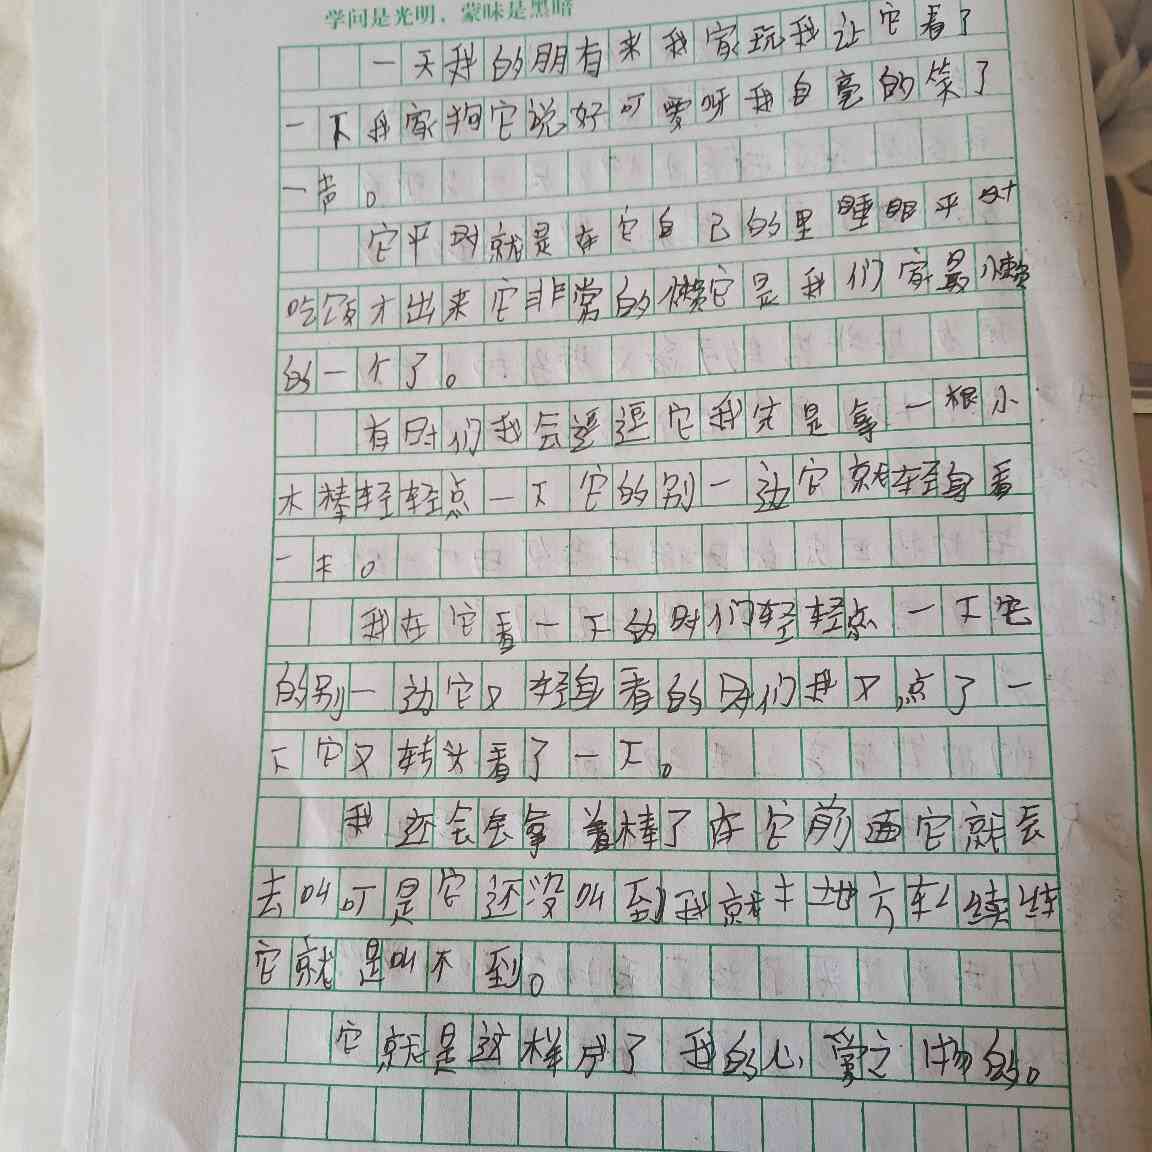 学问是光明，蒙昧是黑暗
一天我的朋有来我家玩我让它看了
一下我家狗它说好可爱呀我自豪的笑了
一声。
它平时就是在它自己的里睡眠平时
吃饭才出来它非常的懒它是我们家最懒
的一个了。
有时们我会逗逗它我先是拿一根小
木棒轻轻点一下它的别一边它就轻身看
一末。
我在它看一下的时们轻轻点一下它
的别一边它又轻身看的时们我又点了一
下它又转头看了一下。
我还会去拿着棒了在它前面它就会
去叫可是它还没叫到我就土地方
它就是叫不到。
它就是这样成了我的心爱之物的。